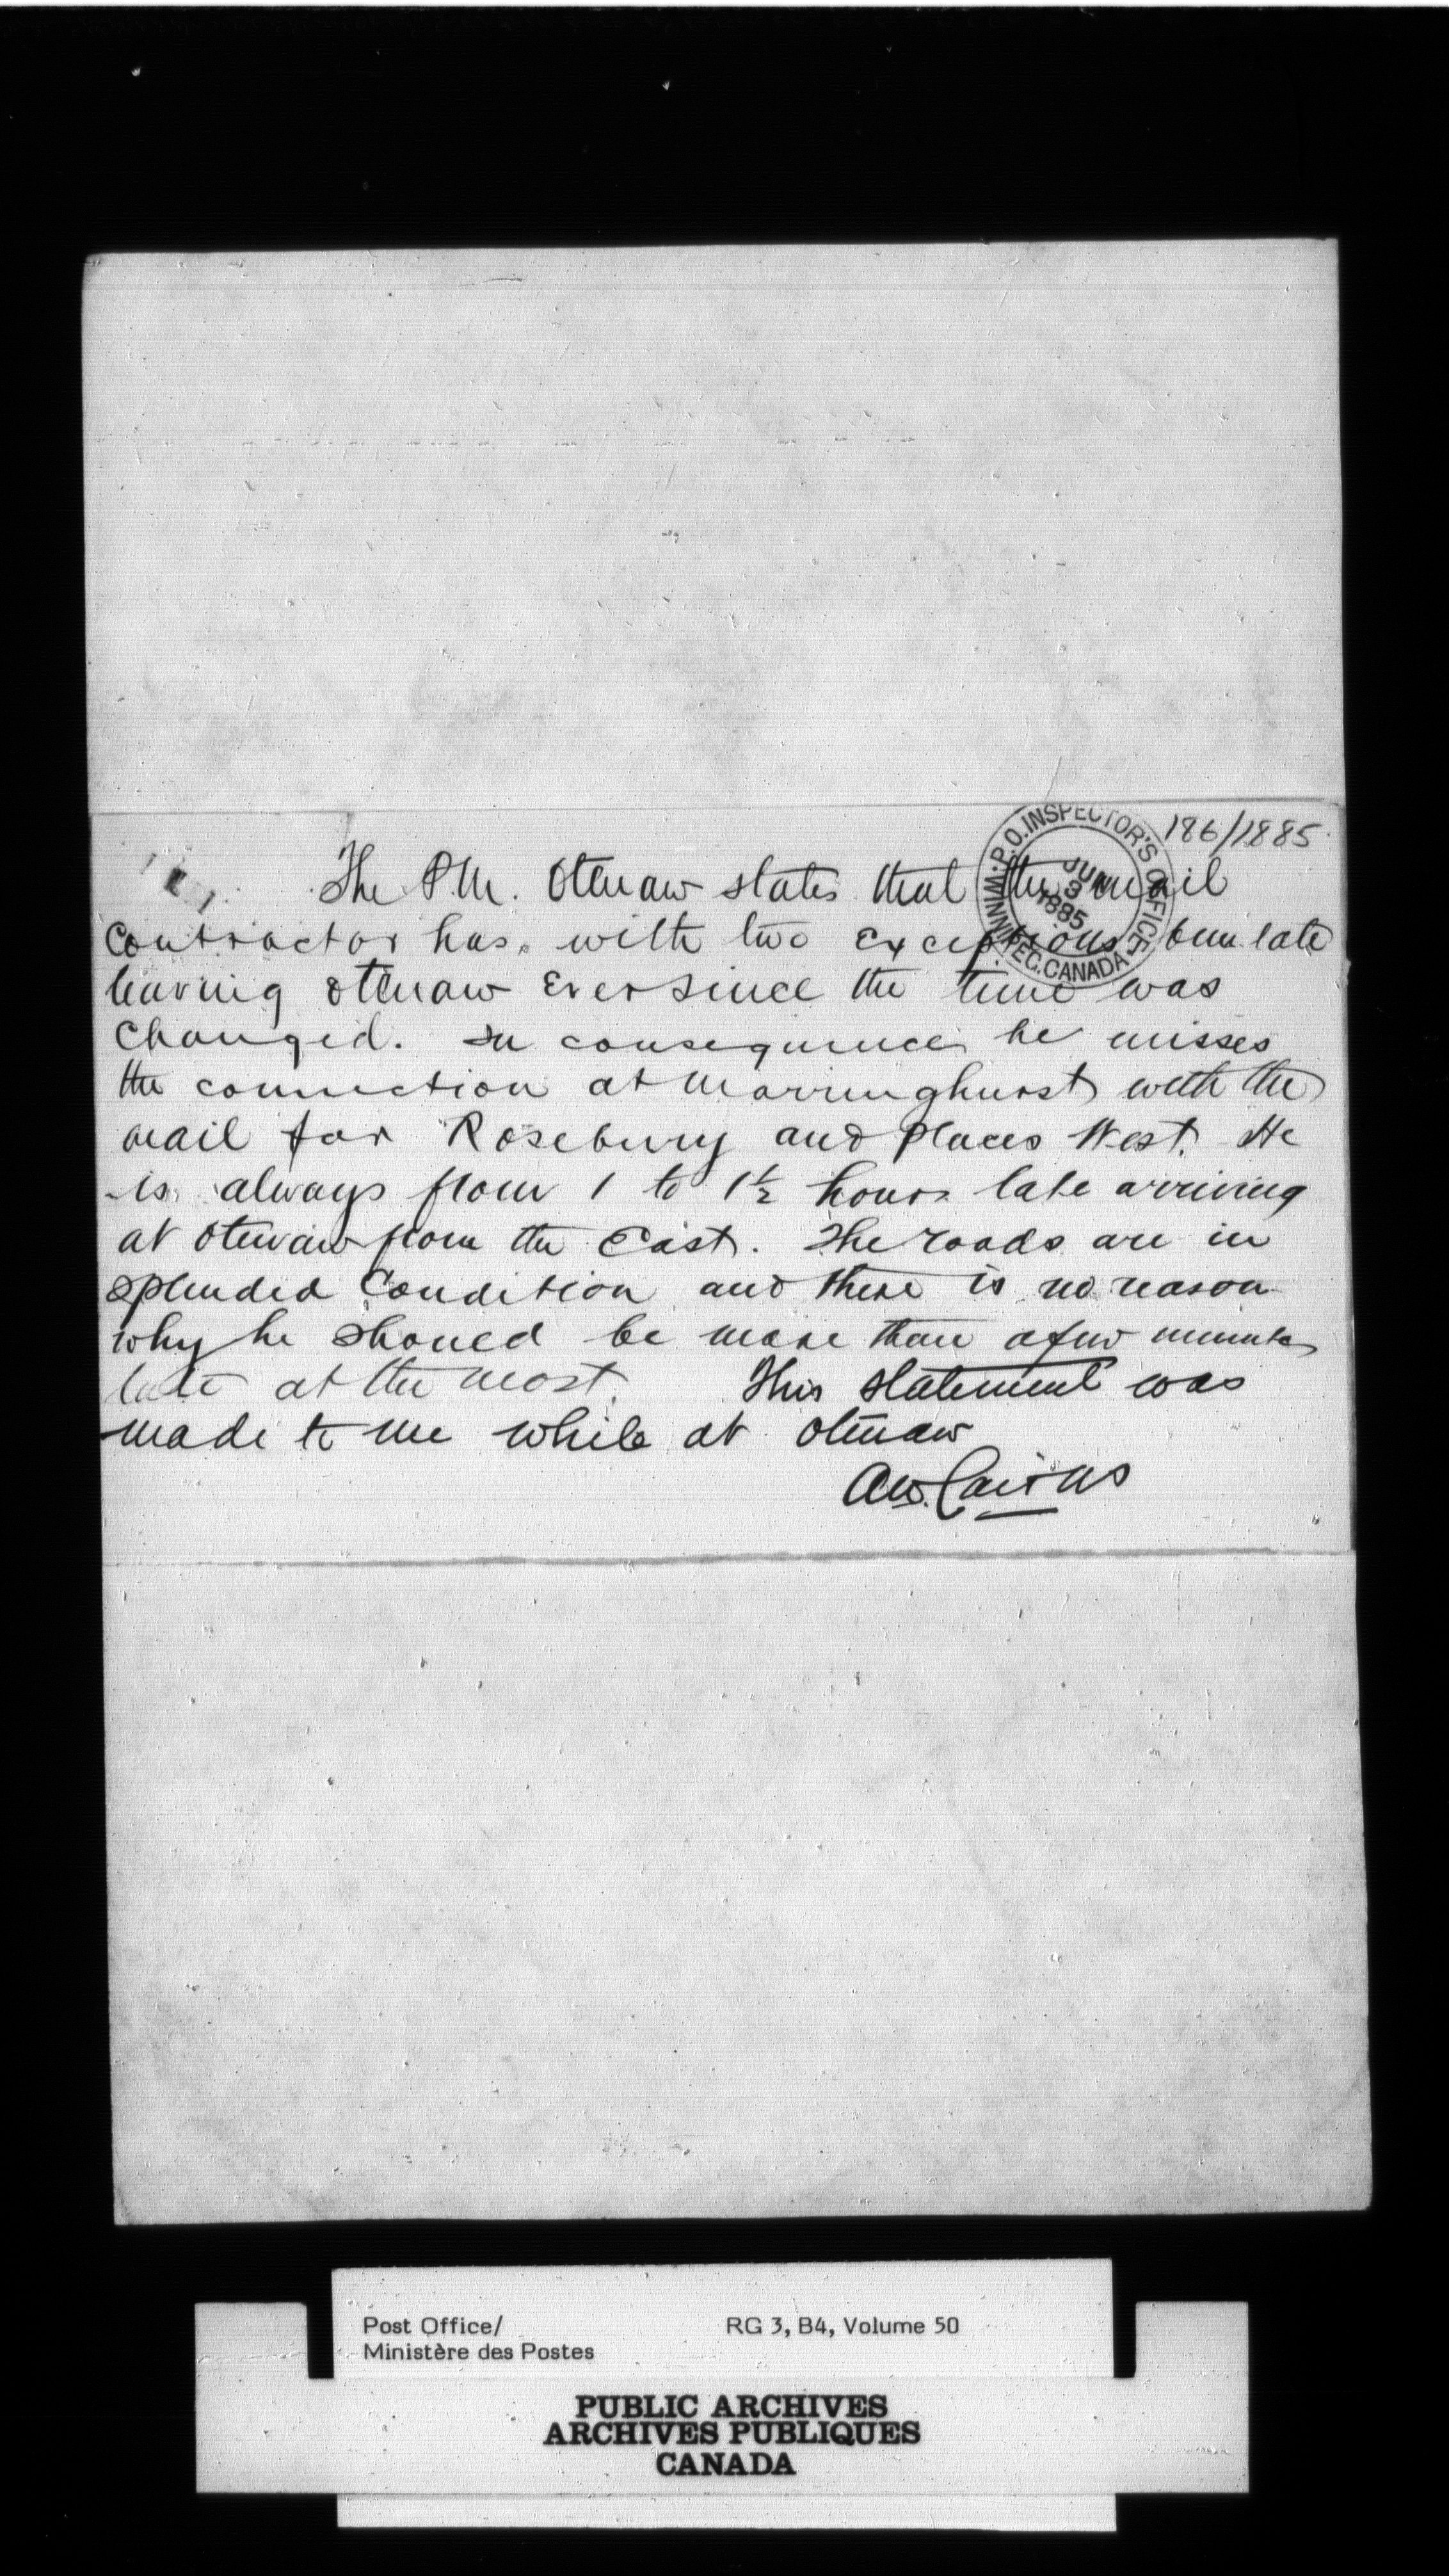 186/1885
P.O. INSPECTOR'S OFFICE.
WINNIPEG. CANADA
JUN
3
1885
The P.M. Otenaw states that the mail
contractor has, with two exceptions, been late
leaving Otenaw ever since the time was
changed. In consequence he misses
the connection at Marringhurst with the
mail for Rosebury and places West. He
is always from 1 to 1½ hours late arriving
at Otenaw from the East. The roads are in
splended condition and there is no reason
why he should be more than a few minutes
late at the most. This statement was
made to me while at Otenaw
AW. Cairns
Post Office/
Ministère des Postes
RG 3, B4, Volume 50
PUBLIC ARCHIVES
ARCHIVES PUBLIQUES
CANADA